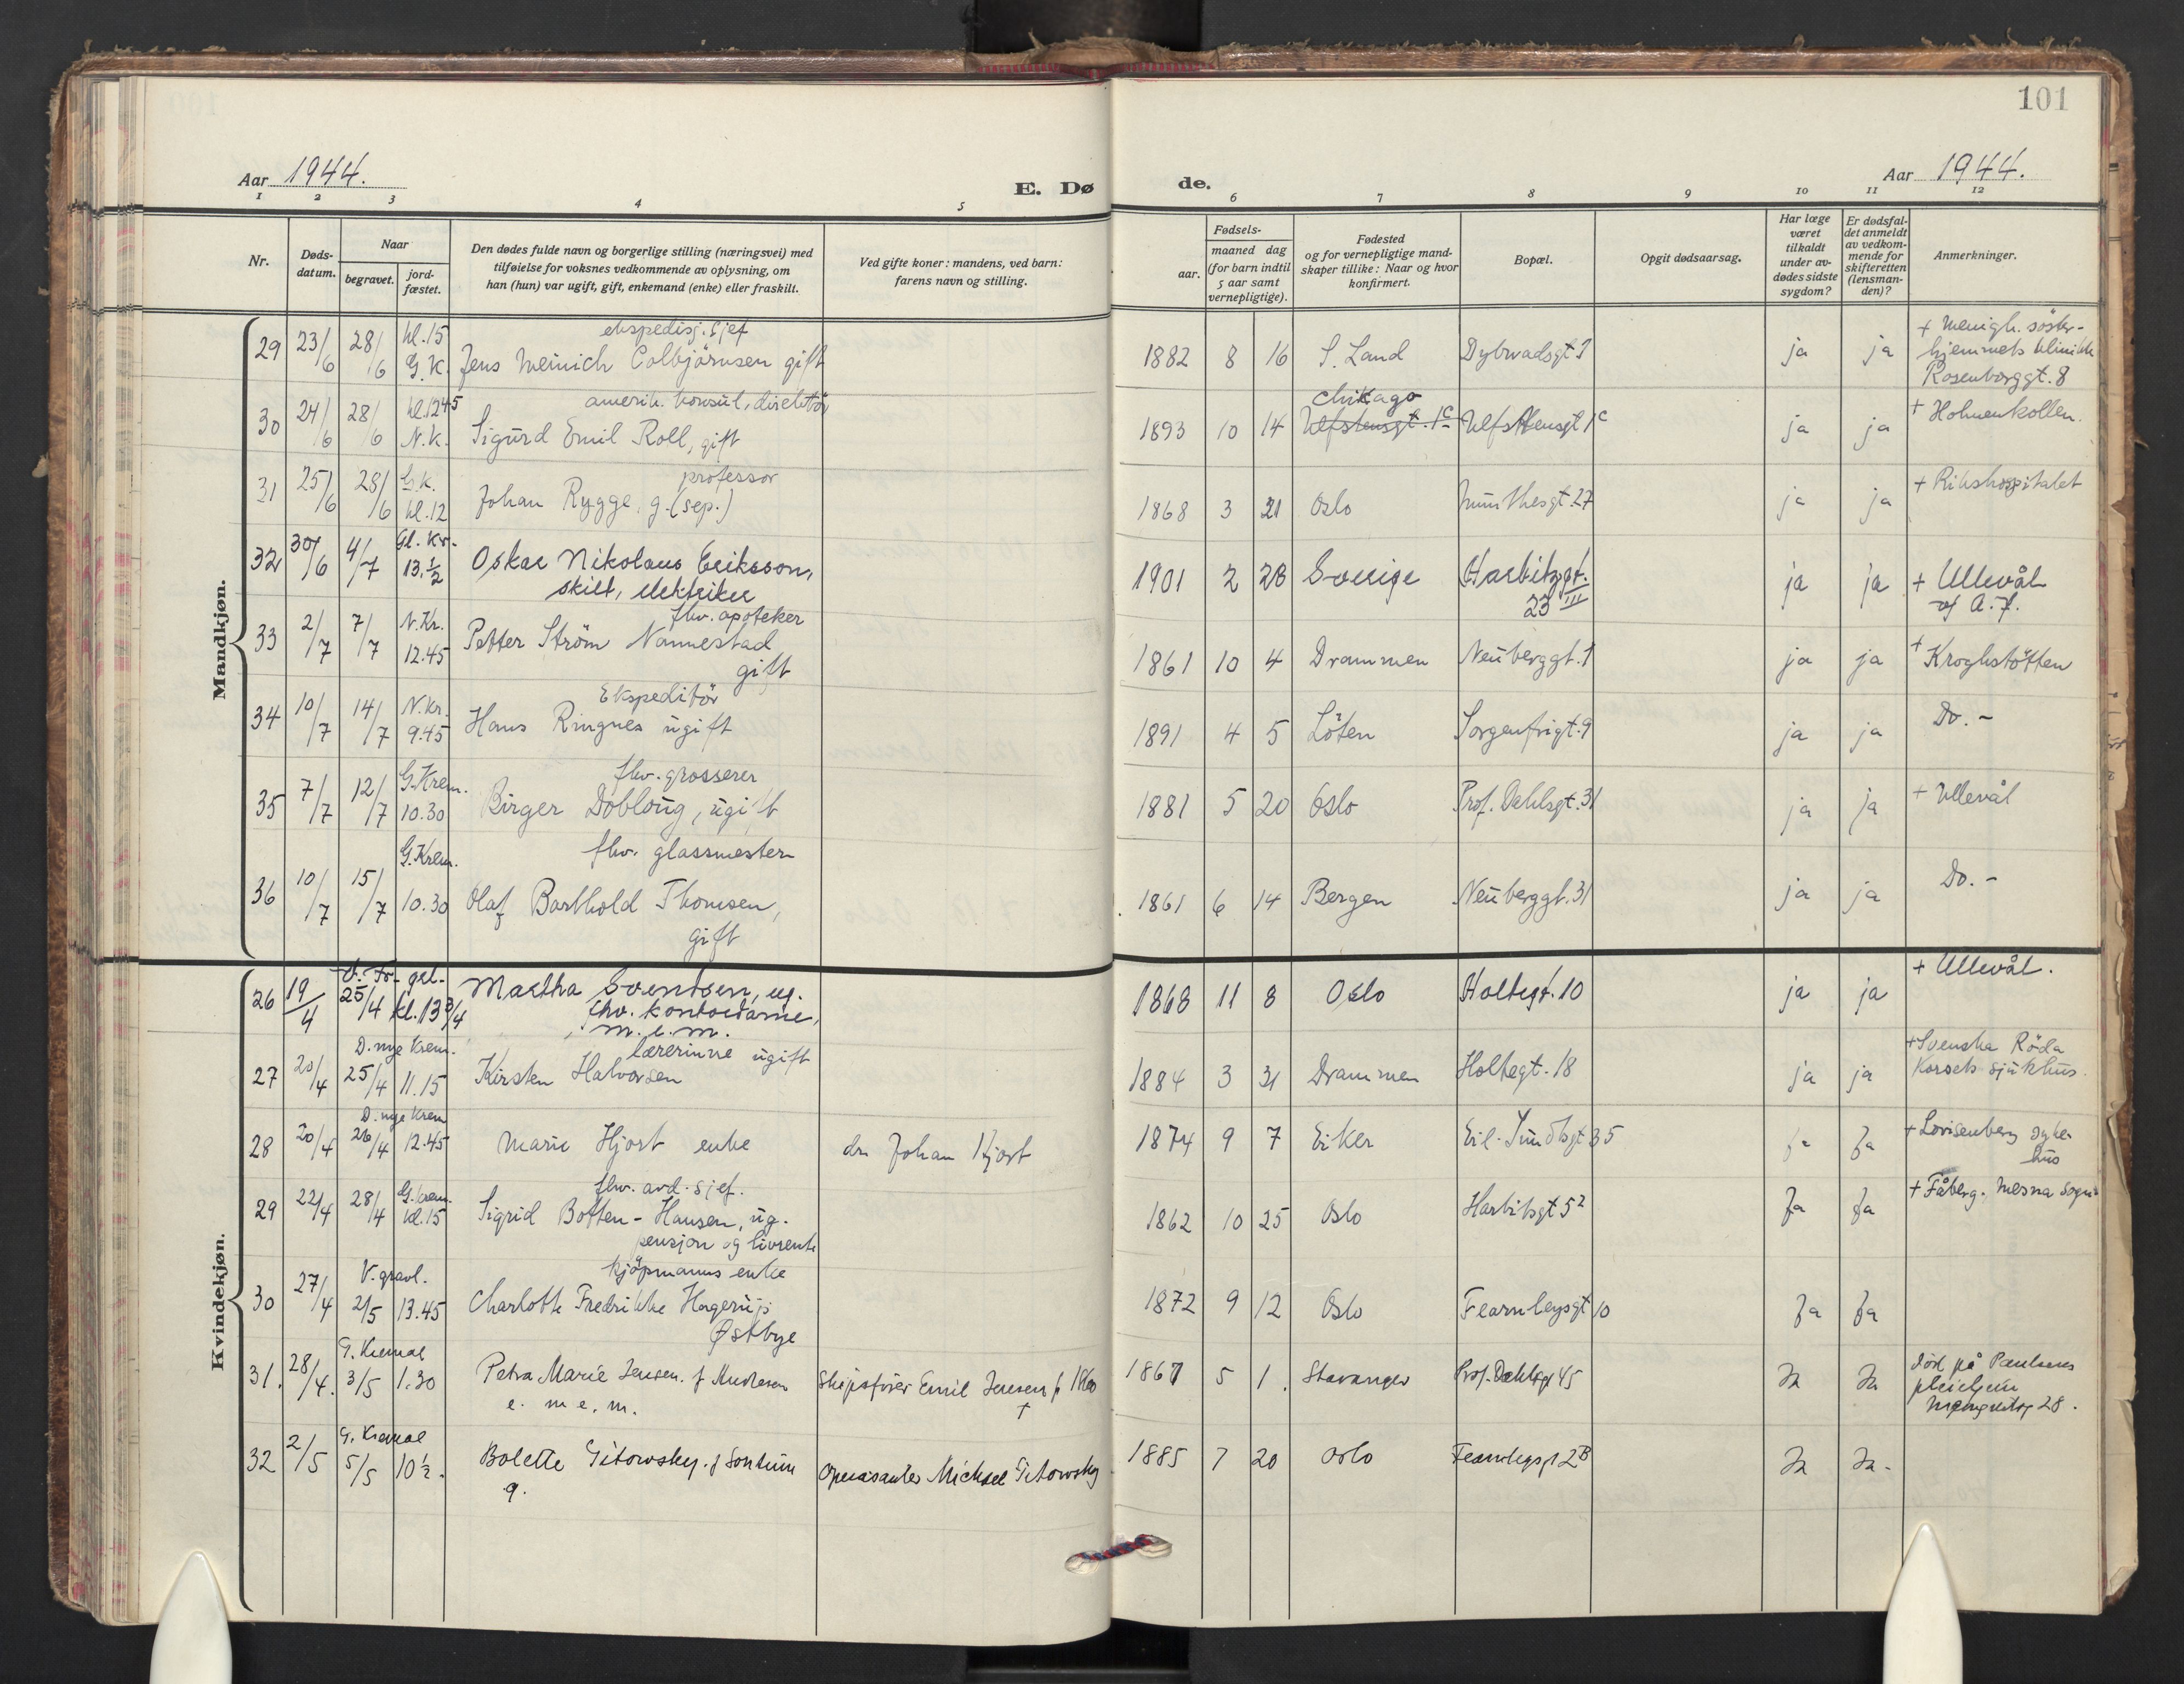 101
Aar 1944.
E. Dø
de.
Aar 1944.
1 2 3 4 5 6 7 8 9 10 11 12
Nr.
Døds-
datum.
Naar
begravet.
jord-
fæstet.
Den dødes fulde navn og borgerlige stilling (næringsvei) med
tilføielse for voksnes vedkommende av oplysning, om
han (hun) var ugift, gift, enkemand (enke) eller fraskilt.
Ved gifte koner: mandens, ved barn:
farens navn og stilling.
Fødsels-
aar.
maaned dag
(for barn indtil
5 aar samt
vernepligtige).
Fødested
og for vernepligtige mand-
skaper tillike: Naar og hvor
konfirmert.
Bopæl.
Opgit dødsaarsag.
Har læge
været
tilkaldt
under av-
dødes sidste
sygdom?
Er dødsfal-
det anmeldt
av vedkom-
mende for
skifteretten
(lensman-
den)?
Anmerkninger.
Mandkjøn.
ekspedisj. sjef
29 23/6 28/6 kl. 15 G.K. Jens Meinich Colbjørnsen gift 1882 8 16 S. Land Dybwadsgt 1 ja ja + Menigh. söster-
hjemmets klinikk
Rosenborggt. 8
amerik. konsul, direktör
30 24/6 28/6 kl. 1245 N.K. Sigurd Emil Roll, gift 1893 10 14 Chikago Ulfstensgt. 1c Ulfstensgt 1c ja ja + Holmenkollen.
professor
31 25/6 28/6 G.k. kl. 12 Johan Rygge, g. (sep.) 1868 3 21 Oslo Munthesgt. 27 ja ja + Rikshospitalet
32 30/6 4/7 Gl. Kr. 13.1/2 Oskar Nikolaus Eriksson, 1901 2 28 Sverige Harbitzgt. 23 III ja ja + Ullevål
skilt, elektriker
flv. apoteker
33 2/7 7/7 N.Kr. 12.45 Petter Ström Nannestad 1861 10 4 Drammen Neuberggt. 1 ja ja + Kroghstötten
gift
Ekspeditör
34 10/7 14/7 N.Kr. 9.45 Hans Ringnes ugift 1891 4 5 Löten Sorgenfrigt. 9 ja ja Do. -
flv. grosserer
35 7/7 12/7 G.Krem. 10.30 Birger Dobloug, ugift 1881 5 20 Oslo Prof. Dahlsgt. 31 ja ja + Ullevål
flv. glassmester
36 10/7 15/7 G.Krem. 10.30 Olaf Barthold Thomsen, 1861 6 14 Bergen Neuberggt. 31 ja ja Do. -
gift
Kvindekjøn.
26 19/4 25/4 kl. 13 3/4 Martha Svendsen, ug. 1868 11 8 Oslo Holtegt. 10 ja ja + Ullevål.
fhv. kontordame,
m. e. m.
D. nye Krem. lærerinne ugift
27 20/4 25/4 11.15 Kirsten Halvorsen 1884 3 31 Drammen Holtegt. 18 ja ja + Svenska Röda
Korsets sjukhus.
D. nye Krem
28 20/4 26/4 12.45 Marie Hjort enke dr. Johan Hjort 1874 9 7 Eiker Eil. Sundtsgt 35 ja Ja + Lovisenberg syke-
hus
flv. avd. sjef.
29 22/4 28/4 G.krem. kl. 15 Sigrid Botten-Hansen, ug. 1862 10 25 Oslo Harbitzgt 5² Ja Ja + Fåberg. Mesna Sogn
pensjon og livrente
V. gravl. kjöpmanns enke
30 27/4 2/5 13.45 Charlotte Fredrikke Hagerup 1872 9 12 Oslo Fearnleysgt 10 Ja Ja
Østbye
G. Kremat
31. 28/4. 3/5 1.30 Petra Marie Jensen. f Andresen Skipsfører Emil Jensen f 1860 † 1867 5 1. Stavanger Prof. Dahlsgt 45 Ja Ja død på Paulsens
pleiehjem
28.
e. m e. m.
G. Kremat
32 2/5 5/5 10 1/2. Bolette Gitowsky. f Sontum Operasanger Michael Gitowsky 1885 7 20 Oslo Fearnleysgt 2B Ja Ja.
g.